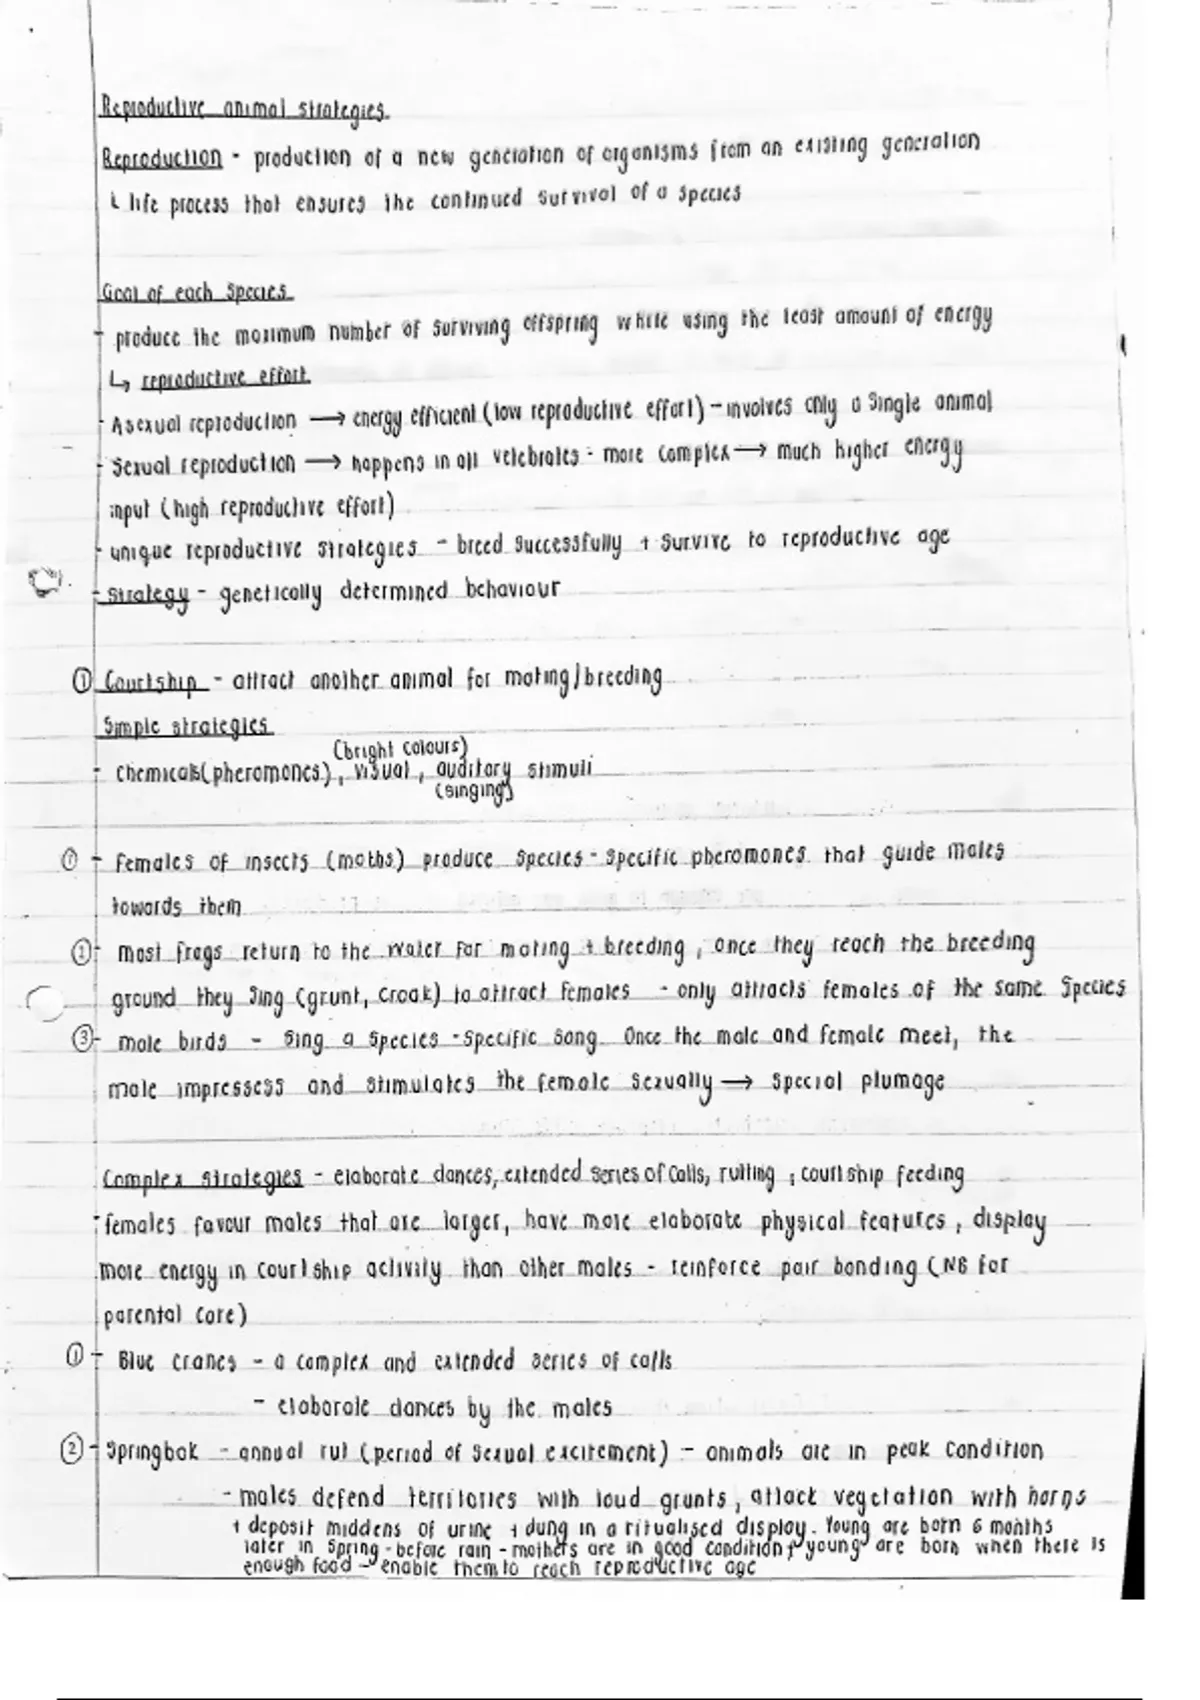 Reproductive animal strategies
Reproduction - production of a new generation of organisms from an existing generation
↳ life process that ensures the continued survival of a species
Goal of each species
- produce the maximum number of surviving offspring while using the least amount of energy
↳ reproductive effort
- Asexual reproduction → energy efficient (low reproductive effort) - involves only a single animal
- Sexual reproduction → happens in all vetebrates - more complex → much higher energy
input (high reproductive effort)
- unique reproductive strategies - breed successfully + survive to reproductive age
- strategy - genetically determined behaviour
① Courtship - attract another animal for mating/breeding
Simple strategies
(bright colours)
- chemicals (pheromones), visual, auditory stimuli
(singing)
① - females of insects (moths) produce species-specific pheromones that guide males
towards them
② - most frogs return to the water for mating + breeding, once they reach the breeding
ground they sing (grunt, croak) to attract females - only attracts females of the same species
③ - male birds - sing a species-specific song. Once the male and female meet, the
male impressess and stimulates the female sexually → special plumage
Complex strategies - elaborate dances, extended series of calls, rutting, courtship feeding
- females favour males that are larger, have more elaborate physical features, display
more energy in courtship activity than other males - reinforce pair bonding (NB for
parental care)
① - Blue cranes - a complex and extended series of calls
- elaborate dances by the males
② - Springbok - annual rut (period of sexual excitement) - animals are in peak condition
- males defend territories with loud grunts, attack vegetation with horns
+ deposit middens of urine + dung in a ritualised display. Young are born 6 months
later in spring - before rain - mothers are in good condition + young are born when there is
enough food - enable them to reach reproductive age